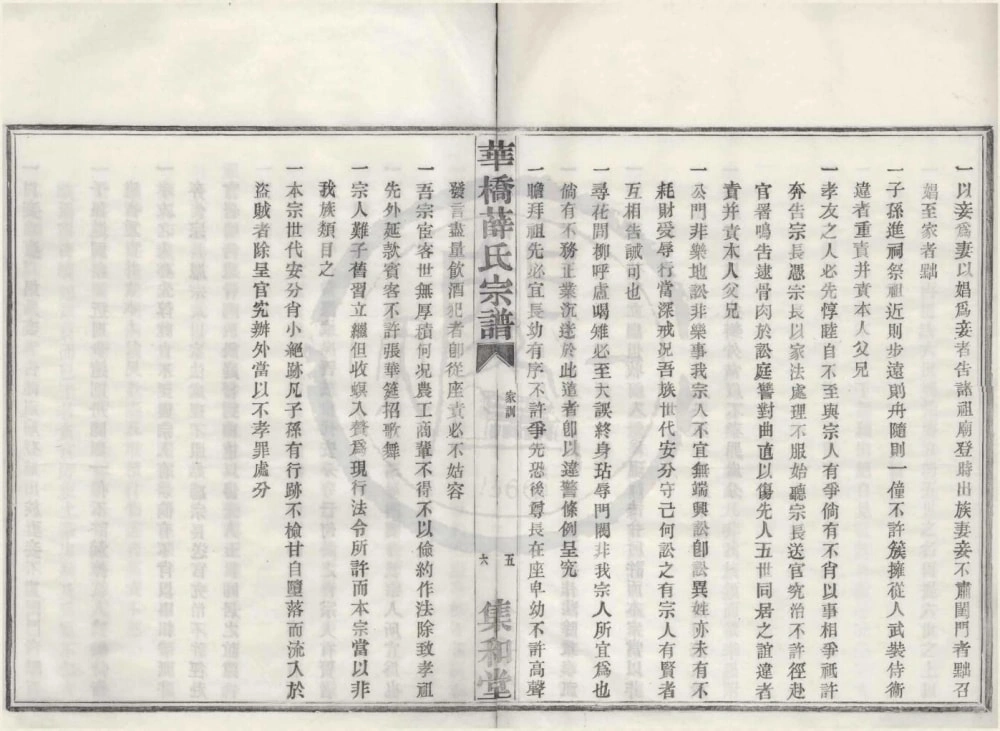 一以妾爲妻以娼爲妾者告諸祖廟登時出族妻妾不肅閨門者黜召
娼至家者黜
一子孫進祠祭祖近則步遠則舟隨則一僮不許簇擁從人武裝侍衛
違者重責并責本人父兄
一孝友之人必先惇睦自不至與宗人有爭倘有不肖以事相爭祇許
奔告宗長憑宗長以家法處理不服始聽宗長送官究治不許徑赴
官署鳴告逮骨肉於訟庭讐對曲直以傷先人五世同居之誼違者
責并責本人父兄
一公門非樂地訟非樂事我宗人不宜無端興訟卽訟異姓亦未有不
耗財受辱行當深戒况吾族世代安分守己何訟之有宗人有賢者
互相告誡可也
一尋花問柳呼盧喝雉必至大誤終身玷辱門閥非我宗人所宜爲也
倘有不務正業沉迷於此道者卽以違警條例呈究
一瞻拜祖先必宜長幼有序不許爭先恐後尊長在座卑幼不許高聲
華橋薛氏宗譜
家訓
五
六
集和堂
發言盡量飲酒犯者卽從座責必不姑容
一吾宗宦客世無厚積何况農工商輩不得不以儉約作法除致孝祖
先外延款賓客不許張華筵招歌舞
一宗人難子舊習立繼但收螟入贅爲現行法令所許而本宗當以非
我族類目之
一本宗世代安分宵小絕跡凡子孫有行跡不檢甘自墮落而流入於
盜賊者除呈官究辦外當以不孝罪處分